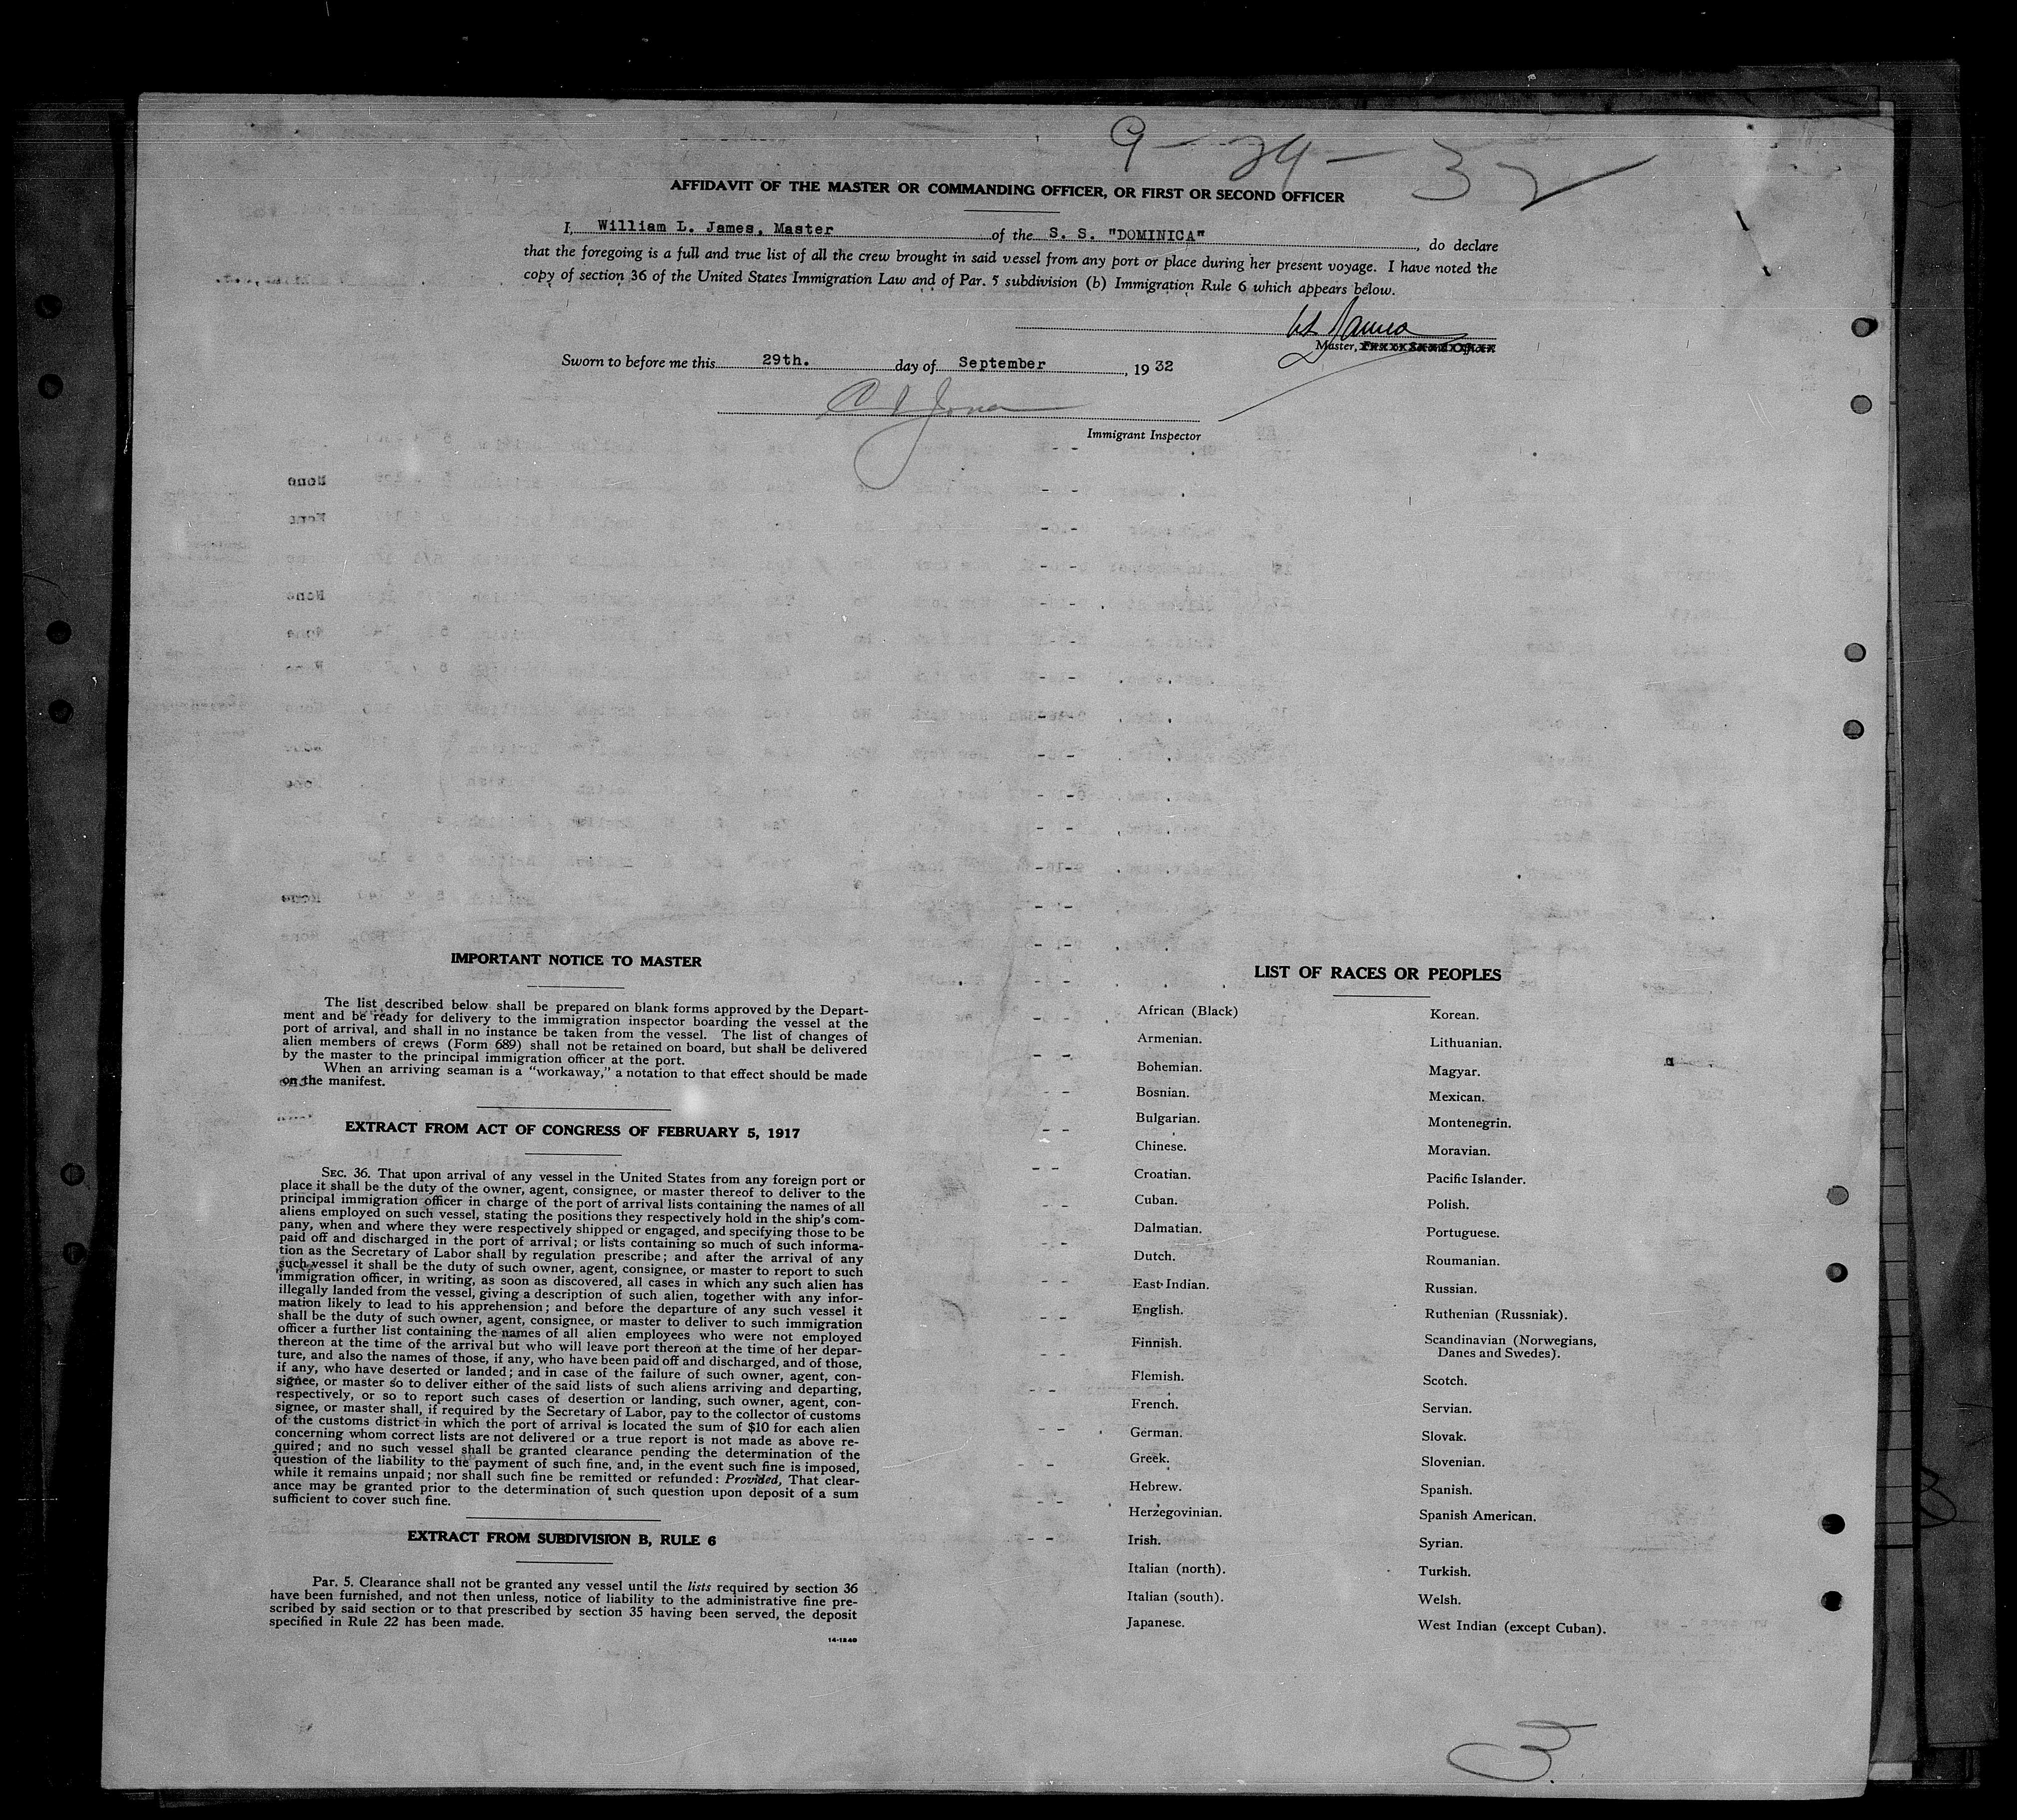 9-29-32
AFFIDAVIT OF THE MASTER OR COMMANDING OFFICER, OR FIRST OR SECOND OFFICER
I, William L. James, Master of the S. S. "DOMINICA", do declare
that the foregoing is a full and true list of all the crew brought in said vessel from any port or place during her present voyage. I have noted the
copy of section 36 of the United States Immigration Law and of Par. 5 subdivision (b) Immigration Rule 6 which appears below.
W L James
Master, First or Second Officer
Sworn to before me this 29th. day of September, 19 32
Immigrant Inspector
IMPORTANT NOTICE TO MASTER
The list described below shall be prepared on blank forms approved by the Depart-
ment and be ready for delivery to the immigration inspector boarding the vessel at the
port of arrival, and shall in no instance be taken from the vessel. The list of changes of
alien members of crews (Form 689) shall not be retained on board, but shall be delivered
by the master to the principal immigration officer at the port.
When an arriving seaman is a "workaway," a notation to that effect should be made
on the manifest.
EXTRACT FROM ACT OF CONGRESS OF FEBRUARY 5, 1917
SEC. 36. That upon arrival of any vessel in the United States from any foreign port or
place it shall be the duty of the owner, agent, consignee, or master thereof to deliver to the
principal immigration officer in charge of the port of arrival lists containing the names of all
aliens employed on such vessel, stating the positions they respectively hold in the ship's com-
pany, when and where they were respectively shipped or engaged, and specifying those to be
paid off and discharged in the port of arrival; or lists containing so much of such informa-
tion as the Secretary of Labor shall by regulation prescribe; and after the arrival of any
such vessel it shall be the duty of such owner, agent, consignee, or master to report to such
immigration officer, in writing, as soon as discovered, all cases in which any such alien has
illegally landed from the vessel, giving a description of such alien, together with any infor-
mation likely to lead to his apprehension; and before the departure of any such vessel it
shall be the duty of such owner, agent, consignee, or master to deliver to such immigration
officer a further list containing the names of all alien employees who were not employed
thereon at the time of the arrival but who will leave port thereon at the time of her depar-
ture, and also the names of those, if any, who have been paid off and discharged, and of those,
if any, who have deserted or landed; and in case of the failure of such owner, agent, con-
signee, or master so to deliver either of the said lists of such aliens arriving and departing,
respectively, or so to report such cases of desertion or landing, such owner, agent, con-
signee, or master shall, if required by the Secretary of Labor, pay to the collector of customs
of the customs district in which the port of arrival is located the sum of $10 for each alien
concerning whom correct lists are not delivered or a true report is not made as above re-
quired; and no such vessel shall be granted clearance pending the determination of the
question of the liability to the payment of such fine, and, in the event such fine is imposed,
while it remains unpaid; nor shall such fine be remitted or refunded: Provided, That clear-
ance may be granted prior to the determination of such question upon deposit of a sum
sufficient to cover such fine.
EXTRACT FROM SUBDIVISION B, RULE 6
Par. 5. Clearance shall not be granted any vessel until the lists required by section 36
have been furnished, and not then unless, notice of liability to the administrative fine pre-
scribed by said section or to that prescribed by section 35 having been served, the deposit
specified in Rule 22 has been made.
14-1240
LIST OF RACES OR PEOPLES
African (Black)
Armenian.
Bohemian.
Bosnian.
Bulgarian.
Chinese.
Croatian.
Cuban.
Dalmatian.
Dutch.
East Indian.
English.
Finnish.
Flemish.
French.
German.
Greek.
Hebrew.
Herzegovinian.
Irish.
Italian (north).
Italian (south).
Japanese.
Korean.
Lithuanian.
Magyar.
Mexican.
Montenegrin.
Moravian.
Pacific Islander.
Polish.
Portuguese.
Roumanian.
Russian.
Ruthenian (Russniak).
Scandinavian (Norwegians,
Danes and Swedes).
Scotch.
Servian.
Slovak.
Slovenian.
Spanish.
Spanish American.
Syrian.
Turkish.
Welsh.
West Indian (except Cuban).